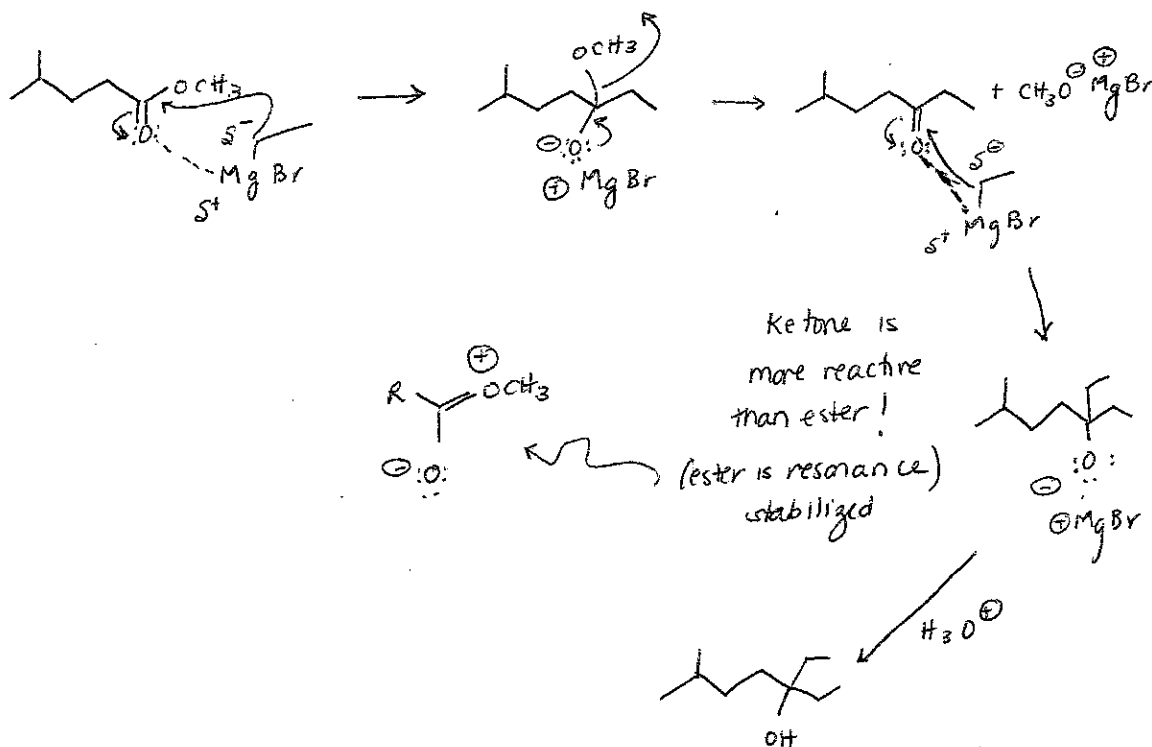 OCH3
:O:
δ⁻
MgBr
δ⁺
OCH3
⊖ :O:
⊕ MgBr
:O:
+ CH3O⊖ ⊕MgBr
δ⊖
δ⁺ MgBr
Ketone is
more reactive
than ester!
(ester is resonance)
stabilized
⊕
R OCH3
⊖ :O:
:O:
⊖
⊕MgBr
H3O⊕
OH